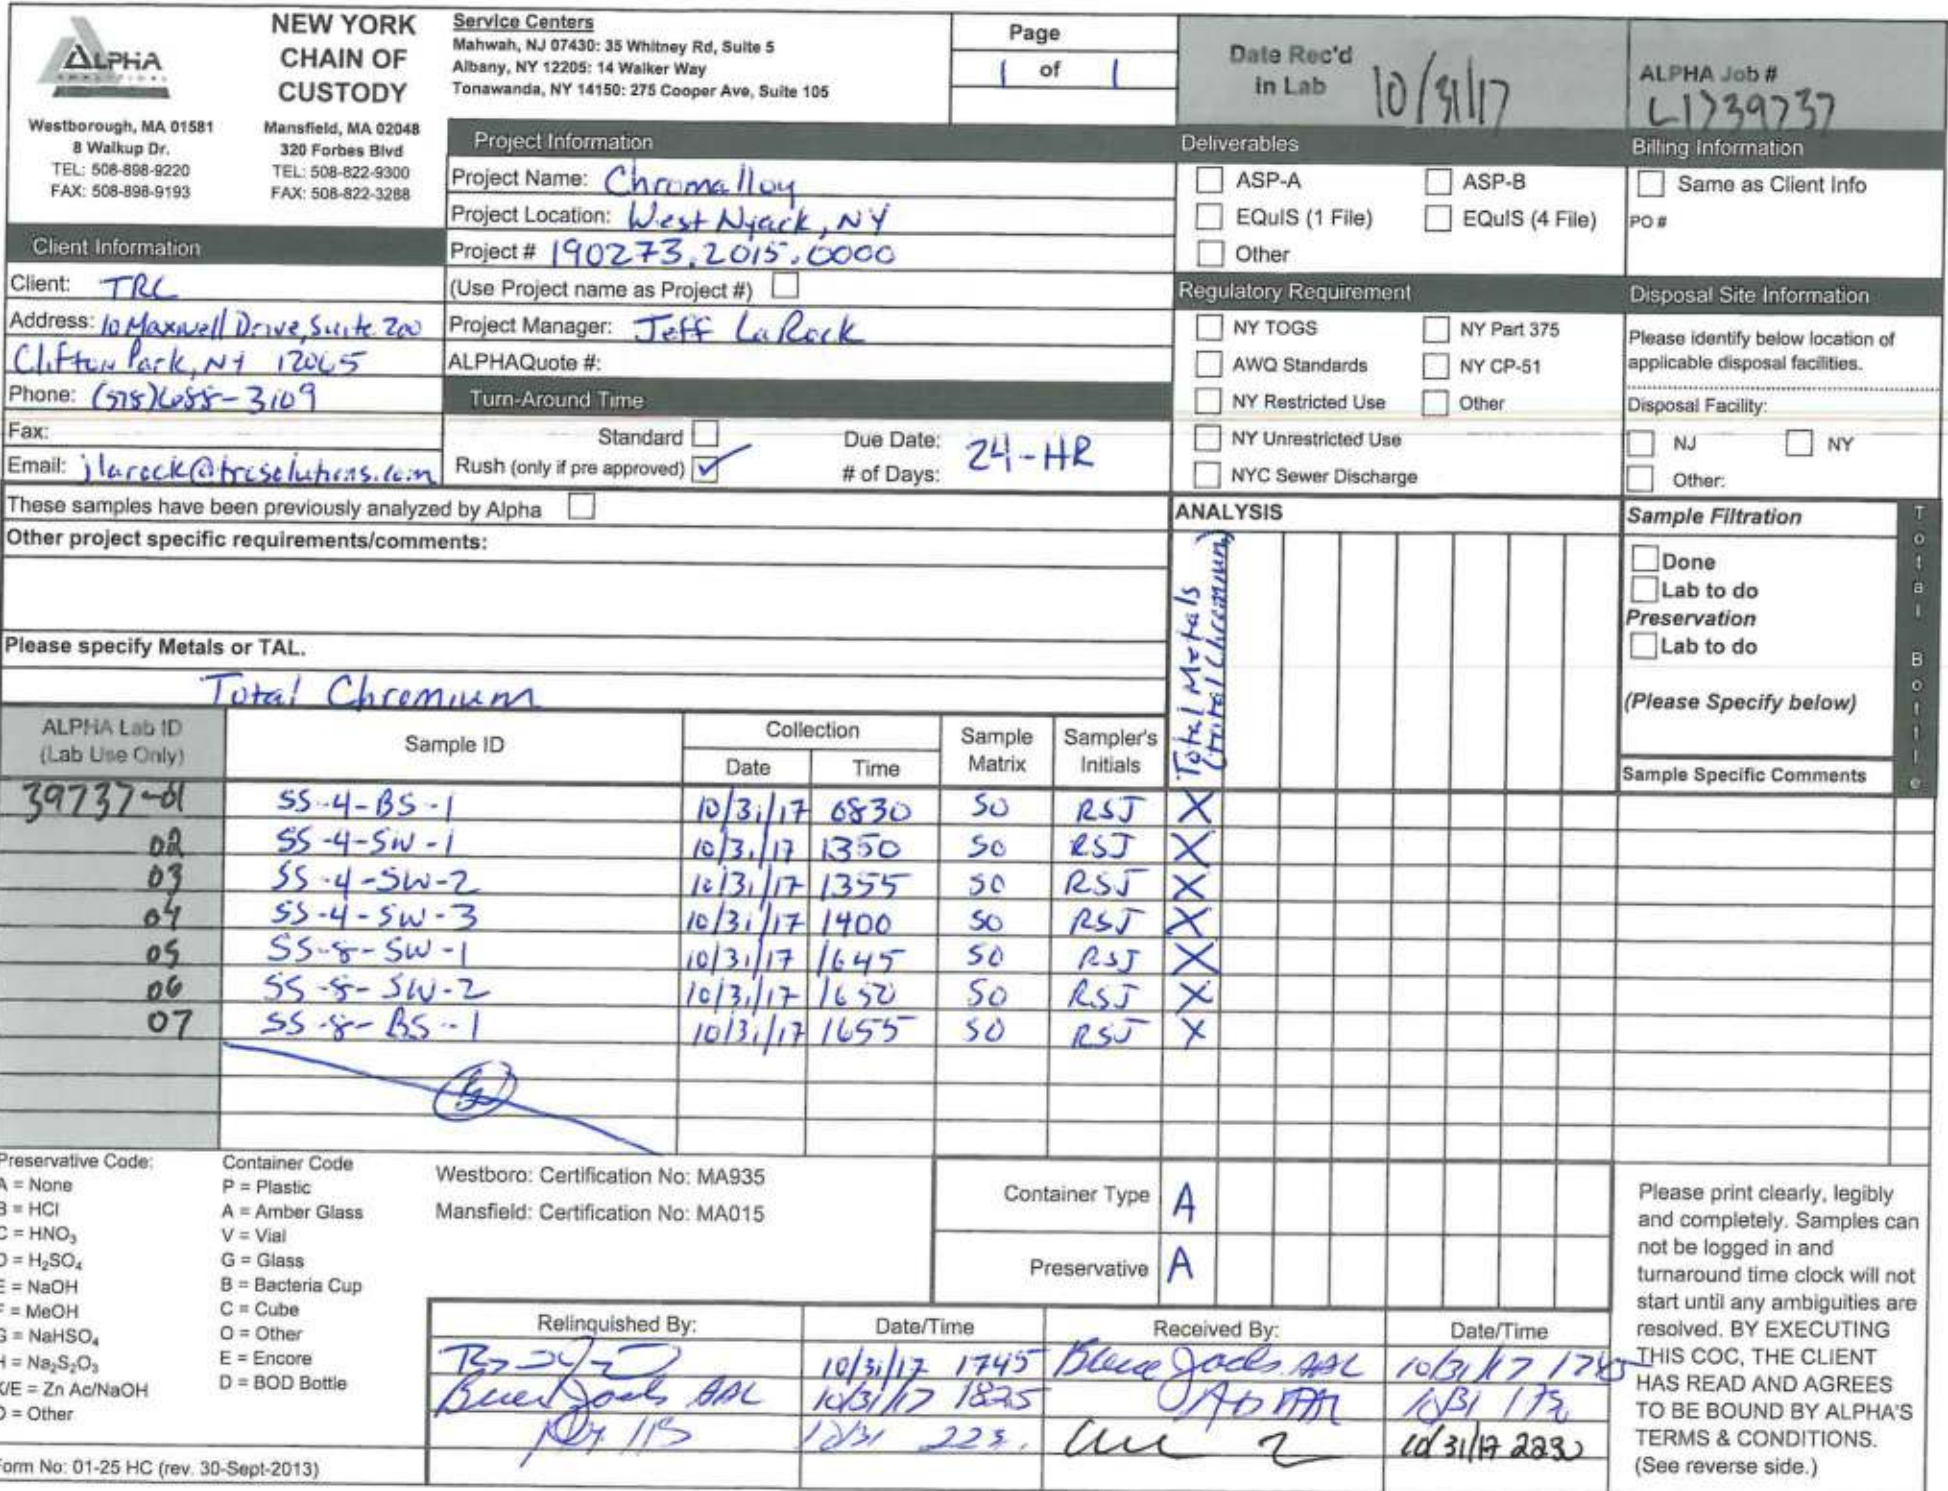 ALPHA
ANALYTICAL
NEW YORK
CHAIN OF
CUSTODY
Westborough, MA 01581
8 Walkup Dr.
TEL: 508-898-9220
FAX: 508-898-9193
Mansfield, MA 02048
320 Forbes Blvd
TEL: 508-822-9300
FAX: 508-822-3288
Service Centers
Mahwah, NJ 07430: 35 Whitney Rd, Suite 5
Albany, NY 12205: 14 Walker Way
Tonawanda, NY 14150: 275 Cooper Ave, Suite 105
Page
1 of 1
Date Rec'd
in Lab 10/31/17
ALPHA Job #
L1739737
Client Information
Client: TRC
Address: 10 Maxwell Drive, Suite 200
Clifton Park, NY 12065
Phone: (518)688-3109
Fax:
Email: jlarock@trcsolutions.com
Project Information
Project Name: Chromalloy
Project Location: West Nyack, NY
Project # 190273.2015.0000
(Use Project name as Project #)
Project Manager: Jeff LaRock
ALPHAQuote #:
Turn-Around Time
Standard
Rush (only if pre approved) ✓
Due Date:
# of Days:
24-HR
Deliverables
ASP-A ASP-B
EQuIS (1 File) EQuIS (4 File)
Other
Regulatory Requirement
NY TOGS NY Part 375
AWQ Standards NY CP-51
NY Restricted Use Other
NY Unrestricted Use
NYC Sewer Discharge
Billing Information
Same as Client Info
PO #
Disposal Site Information
Please identify below location of
applicable disposal facilities.
Disposal Facility:
NJ NY
Other:
These samples have been previously analyzed by Alpha
Other project specific requirements/comments:
Please specify Metals or TAL.
Total Chromium
ANALYSIS
Total Metals
(total Chromium)
Sample Filtration
Done
Lab to do
Preservation
Lab to do
(Please Specify below)
Total Bottle
ALPHA Lab ID
(Lab Use Only)
Sample ID
Collection
Date Time
Sample
Matrix
Sampler's
Initials
Sample Specific Comments
39737-01 SS-4-BS-1 10/31/17 0830 SO RSJ X
02 SS-4-SW-1 10/31/17 1350 SO RSJ X
03 SS-4-SW-2 10/31/17 1355 SO RSJ X
04 SS-4-SW-3 10/31/17 1400 SO RSJ X
05 SS-8-SW-1 10/31/17 1645 SO RSJ X
06 SS-8-SW-2 10/31/17 1650 SO RSJ X
07 SS-8-BS-1 10/31/17 1655 SO RSJ X
Preservative Code:
A = None
B = HCl
C = HNO3
D = H2SO4
E = NaOH
F = MeOH
G = NaHSO4
H = Na2S2O3
K/E = Zn Ac/NaOH
O = Other
Container Code
P = Plastic
A = Amber Glass
V = Vial
G = Glass
B = Bacteria Cup
C = Cube
O = Other
E = Encore
D = BOD Bottle
Westboro: Certification No: MA935
Mansfield: Certification No: MA015
Container Type A
Preservative A
Relinquished By: Date/Time Received By: Date/Time
10/31/17 1745 AAL 10/31/17 1745
AAL 10/31/17 1825
10/31 10/31/17 2230
Please print clearly, legibly
and completely. Samples can
not be logged in and
turnaround time clock will not
start until any ambiguities are
resolved. BY EXECUTING
THIS COC, THE CLIENT
HAS READ AND AGREES
TO BE BOUND BY ALPHA'S
TERMS & CONDITIONS.
(See reverse side.)
Form No: 01-25 HC (rev. 30-Sept-2013)